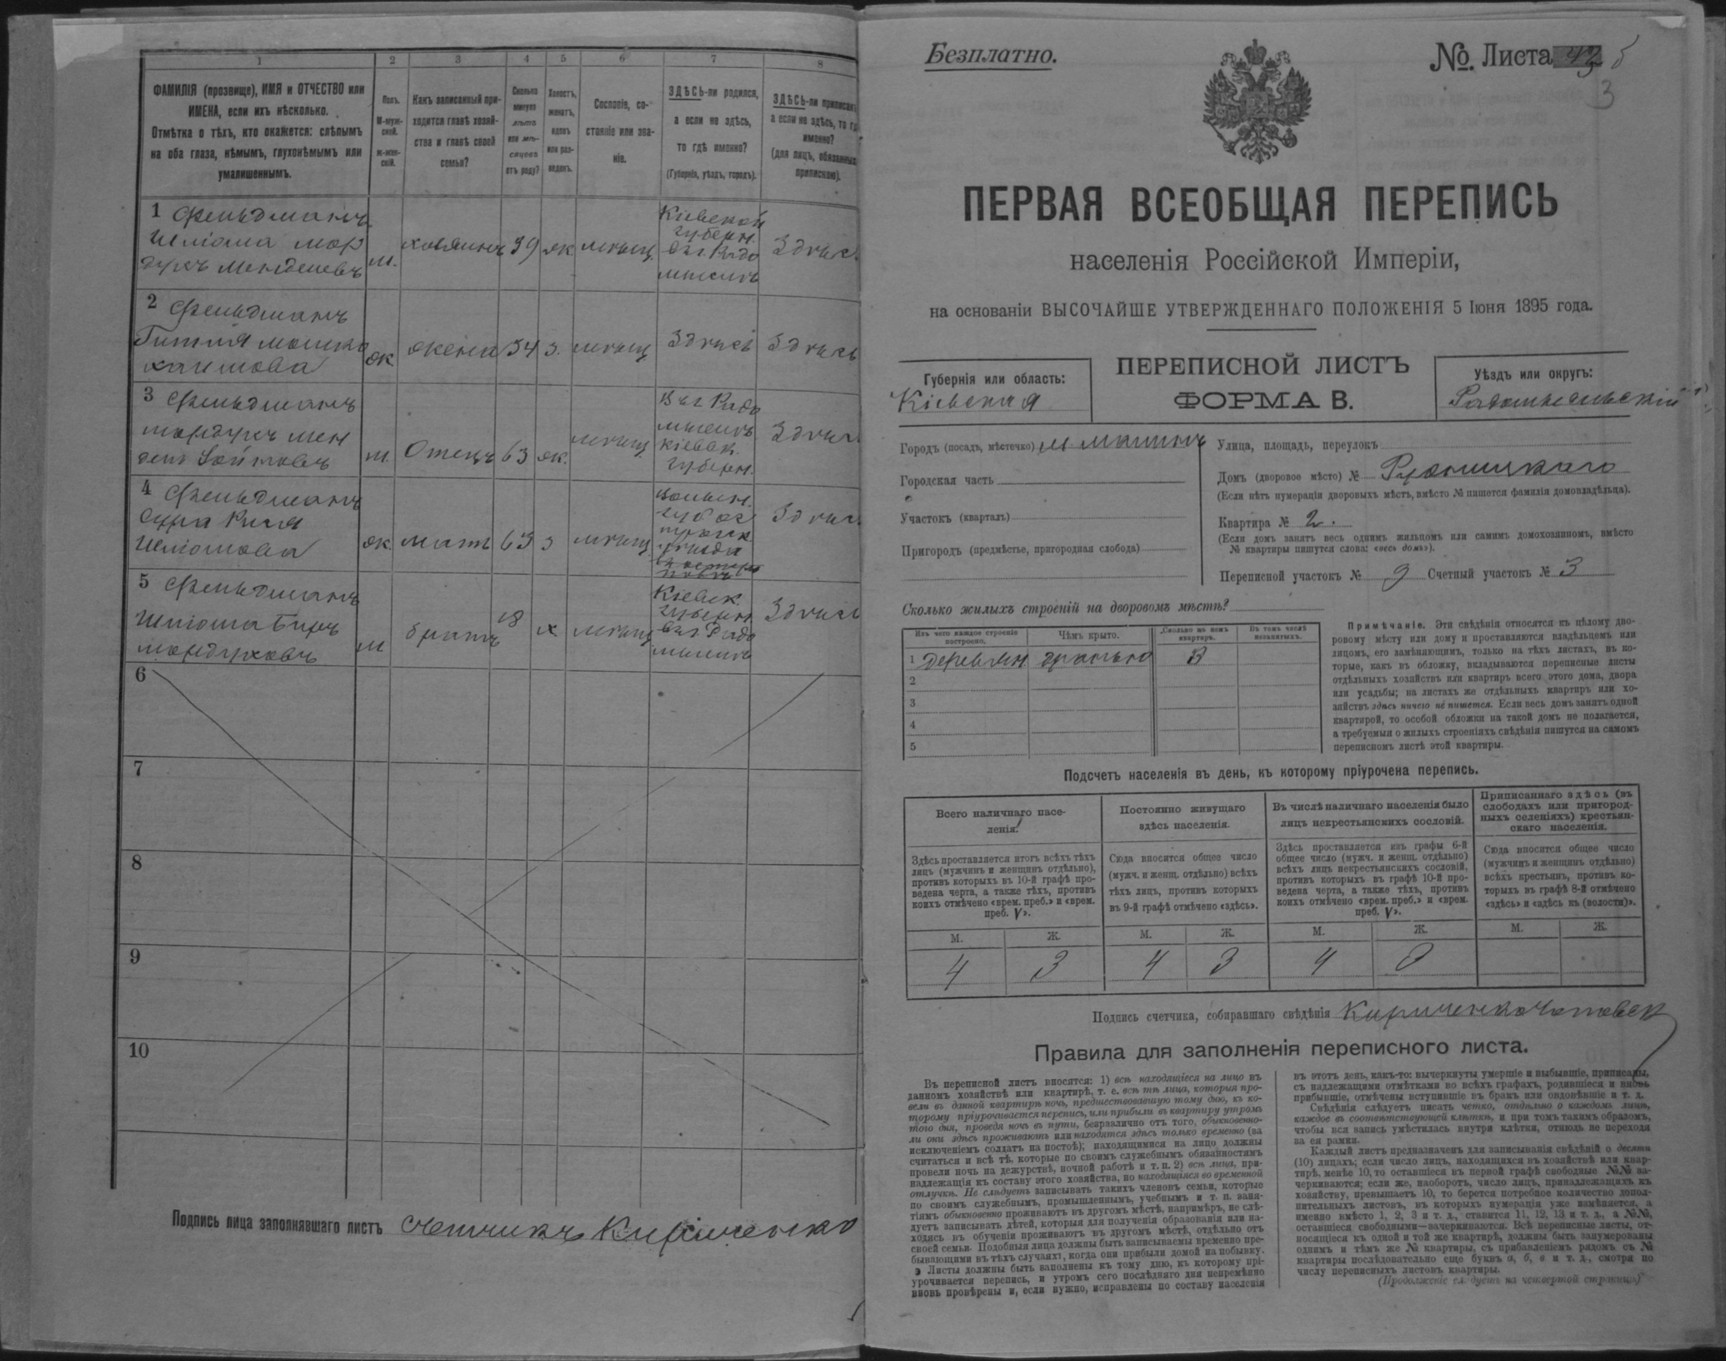 1 2 3 4 5 6 7 8
ФАМИЛІЯ (прозвище), ИМЯ и ОТЧЕСТВО или
ИМЕНА, если ихъ нѣсколько.
Отмѣтка о тѣхъ, кто окажется: слѣпымъ
на оба глаза, нѣмымъ, глухонѣмымъ или
умалишеннымъ.
Полъ.
М-муж-
ской.
ж-жен-
скій.
Какъ записанный при-
ходится главѣ хозяй-
ства и главѣ своей
семьи?
Сколько
минуло
лѣтъ
или мѣ-
сяцевъ
отъ роду?
Холостъ,
женатъ,
вдовъ
или раз-
веденъ.
Сословіе, со-
стояніе или зва-
ніе.
ЗДѢСЬ-ли родился,
а если не здѣсь,
то гдѣ именно?
(Губернія, уѣздъ, городъ).
ЗДѢСЬ-ли приписанъ,
а если не здѣсь, то гдѣ
именно?
(для лицъ, обязанныхъ
припискою).
1 Фельдманъ
Шліома Мор
духъ Менделевъ
м. хозяинъ 39 ж мѣщ
Кіевской
губерн.
въ г Радо
мыслѣ
Здѣсь
2 Фельдманъ
ж жена 34 з. мѣщ Здѣсь Здѣсь
3 Фельдманъ
Мордухъ Мен
м. Отецъ 63 ж. мѣщ
въ г Радо
мыслѣ
Кіевск.
губерн.
Здѣсь
4 Фельдманъ
Сура
Шліомова
ж мать 63 з мѣщ
Здѣсь
5 Фельдманъ
Шліома Беръ
Мордуховъ
м братъ 18 х мѣщ
Кіевск.
губерн
въ г Радо
мыслѣ
Здѣсь
6
7
8
9
10
Подпись лица заполнявшаго листъ счетчикъ Кириченко
Безплатно.
№ Листа
3
ПЕРВАЯ ВСЕОБЩАЯ ПЕРЕПИСЬ
населенія Россійской Имперіи,
на основаніи ВЫСОЧАЙШЕ УТВЕРЖДЕННАГО ПОЛОЖЕНІЯ 5 Іюня 1895 года.
Губернія или область:
Кіевская
ПЕРЕПИСНОЙ ЛИСТЪ
ФОРМА В.
Уѣздъ или округъ:
Радомысльскій
Городъ (посадъ, мѣстечко) м Малинъ
Городская часть
Участокъ (кварталъ)
Пригородъ (предмѣстье, пригородная слобода)
Улица, площадь, переулокъ
Домъ (дворовое мѣсто) № Рудницкаго
(Если нѣтъ нумераціи дворовыхъ мѣстъ, вмѣсто № пишется фамилія домовладѣльца).
Квартира № 2.
(Если домъ занятъ весь однимъ жильцомъ или самимъ домохозяиномъ, вмѣсто
№ квартиры пишутся слова: «весь домъ»).
Переписной участокъ № 9 Счетный участокъ № 3
Сколько жилыхъ строеній на дворовомъ мѣстѣ?
Изъ чего каждое строеніе
построено.
Чѣмъ крыто.
Сколько въ немъ
квартиръ.
Въ томъ числѣ
незанятыхъ.
1 деревян дранью 3
2
3
4
5
Примѣчаніе. Эти свѣдѣнія относятся къ цѣлому дво-
ровому мѣсту или дому и проставляются владѣльцемъ или
лицомъ, его замѣняющимъ, только на тѣхъ листахъ, въ ко-
торые, какъ въ обложку, вкладываются переписные листы
отдѣльныхъ хозяйствъ или квартиръ всего этого дома, двора
или усадьбы; на листахъ же отдѣльныхъ квартиръ или хо-
зяйствъ здѣсь ничего не пишется. Если весь домъ занятъ одной
квартирой, то особой обложки на такой домъ не полагается,
а требуемыя о жилыхъ строеніяхъ свѣдѣнія пишутся на самомъ
переписномъ листѣ этой квартиры.
Подсчетъ населенія въ день, къ которому пріурочена перепись.
Всего наличнаго насе-
ленія.
Постоянно живущаго
здѣсь населенія.
Въ числѣ наличнаго населенія было
лицъ некрестьянскихъ сословій.
Приписаннаго здѣсь (въ
слободахъ или пригород-
ныхъ селеніяхъ) крестьян-
скаго населенія.
Здѣсь проставляется итогъ всѣхъ тѣхъ
лицъ (мужчинъ и женщинъ отдѣльно),
противъ которыхъ въ 10-й графѣ про-
ведена черта, а также тѣхъ, противъ
коихъ отмѣчено «врем. преб.» и «врем.
преб. V».
Сюда вносится общее число
(мужч. и женщ. отдѣльно) всѣхъ
тѣхъ лицъ, противъ которыхъ
въ 9-й графѣ отмѣчено «здѣсь».
Здѣсь проставляется изъ графы 6-й
общее число (мужч. и женщ. отдѣльно)
всѣхъ лицъ некрестьянскихъ сословій,
противъ которыхъ въ графѣ 10-й про-
ведена черта, а также тѣхъ, противъ
коихъ отмѣчено «врем. преб.» и «врем.
преб. V».
Сюда вносится общее число
(мужчинъ и женщинъ отдѣльно)
всѣхъ крестьянъ, противъ ко-
торыхъ въ графѣ 8-й отмѣчено
«здѣсь» и «здѣсь къ (волости)».
М. Ж. М. Ж. М. Ж. М. Ж.
4 3 4 3 4 3
Подпись счетчика, собиравшаго свѣдѣнія
Правила для заполненія переписного листа.
Въ переписной листъ вносятся: 1) всѣ находящіеся на лицо въ
данномъ хозяйствѣ или квартирѣ, т. е. всѣ тѣ лица, которыя про-
вели въ данной квартирѣ ночь, предшествовавшую тому дню, къ ко-
торому пріурочивается перепись, или прибыли въ квартиру утромъ
того дня, проведя ночь въ пути, безразлично отъ того, обыкновенно-
ли они здѣсь проживаютъ или находятся здѣсь только временно (за
исключеніемъ солдатъ на постоѣ); находящимися на лицо должны
считаться и всѣ тѣ, которые по своимъ служебнымъ обязанностямъ
провели ночь на дежурствѣ, ночной работѣ и т. п. 2) всѣ лица, при-
надлежащія къ составу этого хозяйства, но находящіяся во временной
отлучкѣ. Не слѣдуетъ записывать такихъ членовъ семьи, которые
по своимъ служебнымъ, промышленнымъ, учебнымъ и т. п. заня-
тіямъ обыкновенно проживаютъ въ другомъ мѣстѣ, напримѣръ, не слѣ-
дуетъ записывать дѣтей, которыя для полученія образованія или на-
ходясь въ обученіи проживаютъ въ другомъ мѣстѣ, отдѣльно отъ
своей семьи. Подобныя лица должны быть записываемы временно пре-
бывающими въ тѣхъ случаяхъ, когда они прибыли домой на побывку.
Листы должны быть заполнены къ тому дню, къ которому прі-
урочивается перепись, и утромъ сего послѣдняго дня непремѣнно
вновь провѣрены и, если нужно, исправлены по составу населенія
въ этотъ день, какъ-то: вычеркнуты умершіе и выбывшіе, приписаны,
съ надлежащими отмѣтками во всѣхъ графахъ, родившіеся и вновь
прибывшіе, отмѣчены вступившіе въ бракъ или овдовѣвшіе и т. д.
Свѣдѣнія слѣдуетъ писать четко, отдѣльно о каждомъ лицѣ,
каждое въ соотвѣтствующей клѣткѣ, и при томъ такимъ образомъ,
чтобы вся запись умѣстилась внутри клѣтки, отнюдь не переходя
за ея рамки.
Каждый листъ предназначенъ для записыванія свѣдѣній о десяти
(10) лицахъ; если число лицъ, находящихся въ хозяйствѣ или квар-
тирѣ, менѣе 10, то оставшіеся въ первой графѣ свободные №№ за-
черкиваются; если же, наоборотъ, число лицъ, принадлежащихъ къ
хозяйству, превышаетъ 10, то берется потребное количество допол-
нительныхъ листовъ, въ которыхъ нумерація уже измѣняется, а
именно вмѣсто 1, 2, 3 и т. д., ставится 11, 12, 13 и т. д., а №№,
оставшіеся свободными—зачеркиваются. Всѣ переписные листы, от-
носящіеся къ одной и той же квартирѣ, должны быть занумерованы
однимъ и тѣмъ же № квартиры, съ прибавленіемъ рядомъ съ №
квартиры послѣдовательно еще буквъ а, б, в и т. д., смотря по
числу переписныхъ листовъ квартиры.
(Продолженіе слѣдуетъ на четвертой страницѣ)